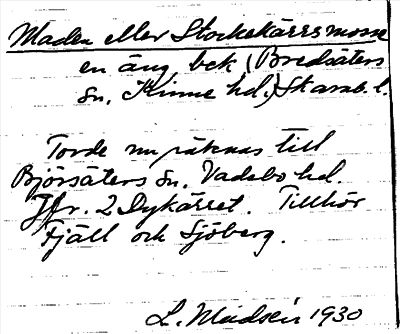 Maden eller Stockakärrsmosse
en äng bek (Bredsäters
Sn, Kinne hd.) Skarab. l.
Torde nu räknas till
Björsäters Sn. Vadsbo hd.
Jfr. 2 Dykärret. Tillhör
Fjäll och Sjöberg.
L. Madsén 1930